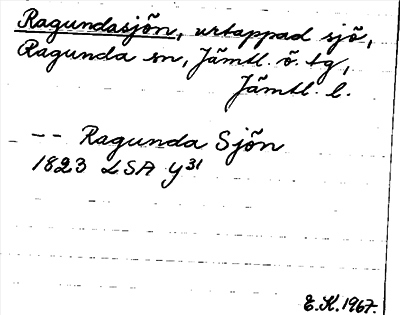 Ragundasjön, urtappad sjö,
Ragunda sn, Jämtl. ö. tg,
Jämtl. l.
-- Ragunda Sjön
1823 LSA Y31
E.K. 1967.